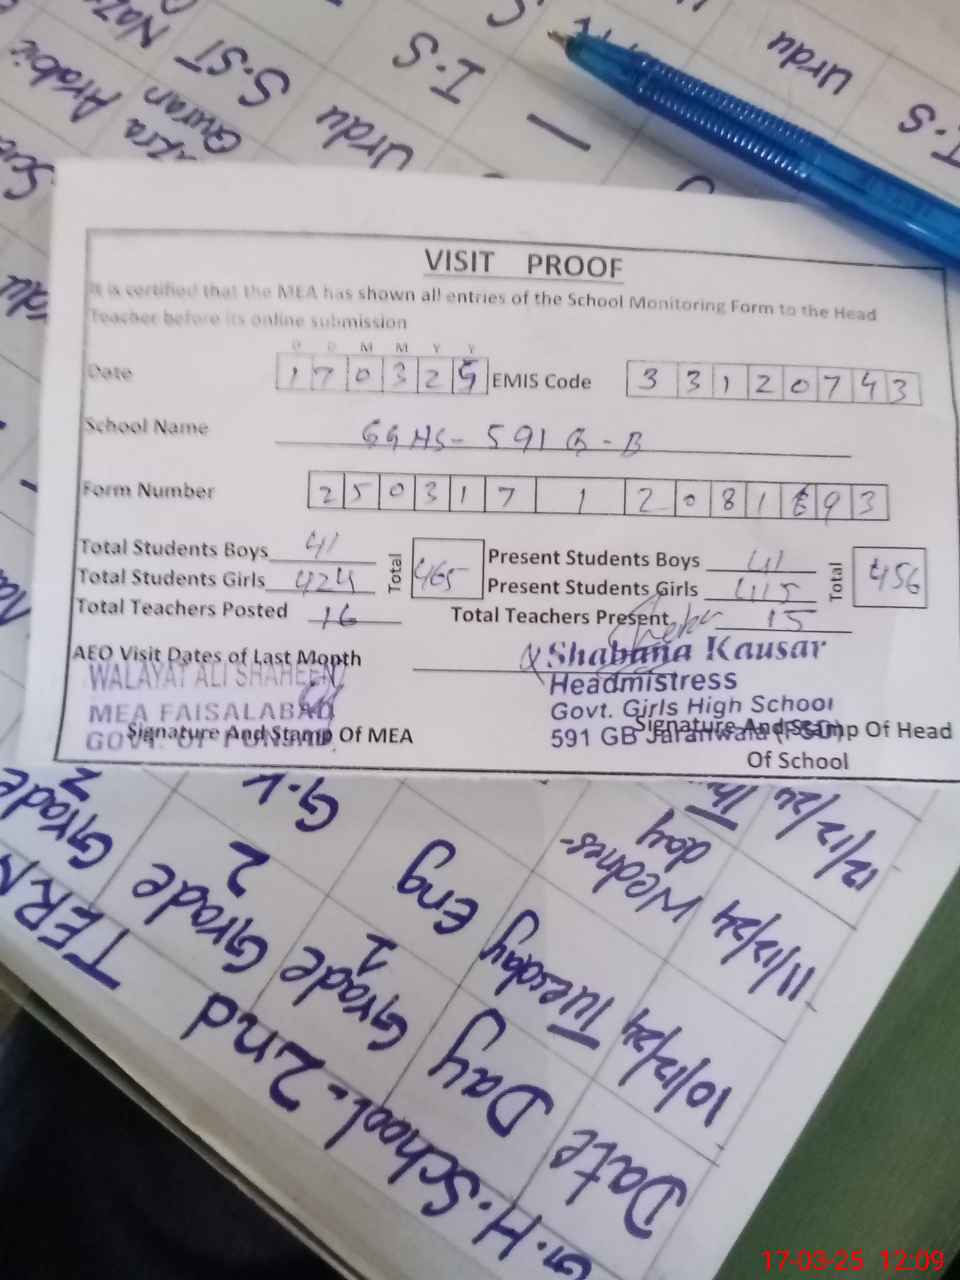 Arabic
S.ST
Quran
Urdu
I.S
Urdu
VISIT PROOF
It is certified that the MEA has shown all entries of the School Monitoring Form to the Head
Teacher before its online submission
D D M M Y Y
Date 1 7 0 3 2 5 EMIS Code 3 3 1 2 0 7 4 3
School Name GGHS- 591 G-B
Form Number 2 5 0 3 1 7 1 2 0 8 1 9 3
Total Students Boys 41 Total 465 Present Students Boys 41 Total 456
Total Students Girls 424 Present Students Girls 415
Total Teachers Posted 16 Total Teachers Present 15
AEO Visit Dates of Last Month
WALAYAT ALI SHAHEEN
MEA FAISALABAD
GOVT. OF PUNJAB
Signature And Stamp Of MEA
Shabana Kausar
Headmistress
Govt. Girls High School
591 GB Jaranwala (FSD)
Signature And Stamp Of Head
Of School
G.H.School. 2nd TERM
Date Day Grade 1 Grade 2 Grade
10/12/24 Tuesday Eng G.K
11/12/24 Wednesday
12/12/24
17-03-25 12:09